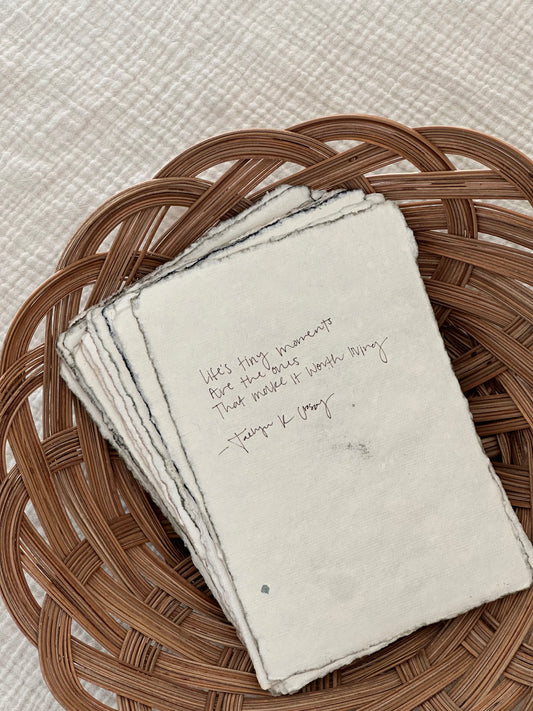 Life's tiny moments
Are the ones
That make it worth living
- K